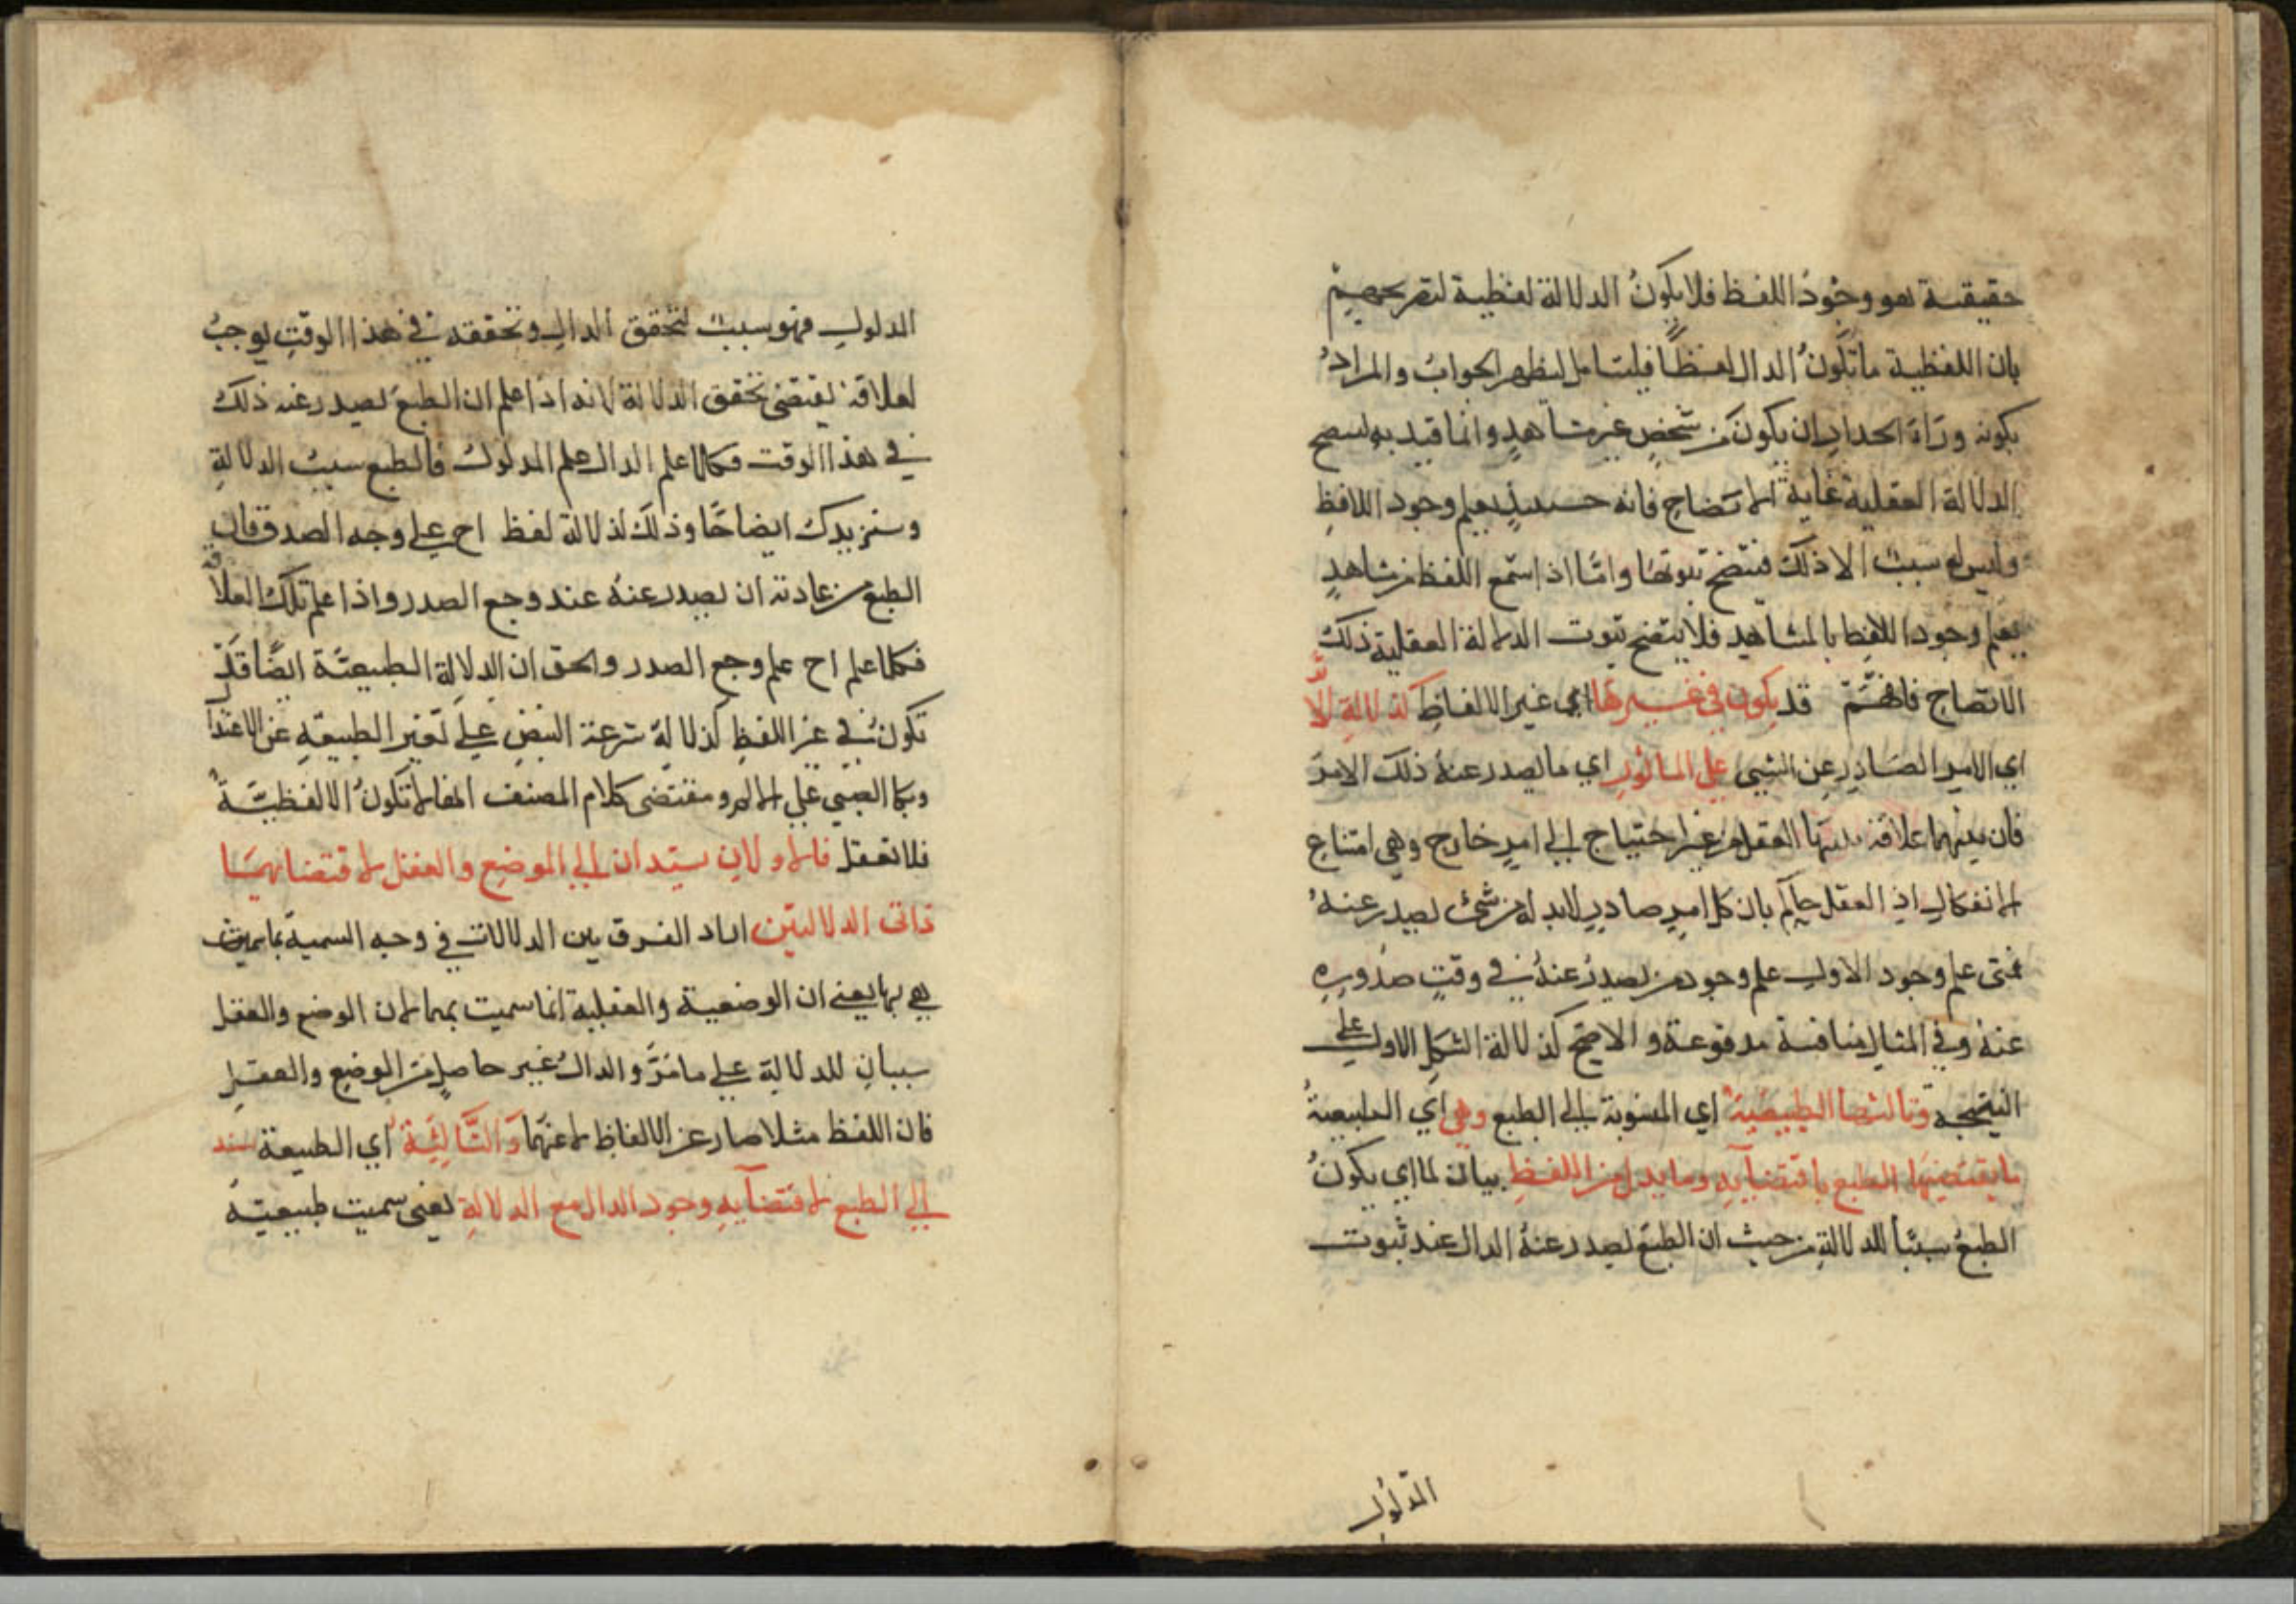 حقيقية هو وجود اللفظ فلا يكون الدلالة لفظية لتصريحهم
بان اللفظية ما تكون الدال لفظا فليتامل ليظهر الجواب والمراد
بكونه وراء الجدار ان يكون من شخص غير مشاهد وانما قيد به ليتضح
الدلالة العقلية غاية الاتضاح فانه حينئذ يعلم وجود اللافظ
وليس له سبب الا ذلك فيتضح ثبوتها واما اذا سمع اللفظ من مشاهد
يعلم وجود اللافظ بالمشاهد فلا يتضح ثبوت الدلالة العقلية ذلك
الاتضاح فافهم قد يكون في غيرها اي غير الالفاظ كدلالة الاثر
اي الامر الصادر عن الشيئ على المؤثر اي ما يصدر عنه ذلك الامر
فان بينهما علاقة العقل من غير احتياج الى امر خارج وهي امتناع
الانفكاك اذ العقل حاكم بان كل امر صادر لابد له من شئ يصدر عنه
فمتى علم وجود الاول علم وجود من يصدر عنه في وقت صدوره
عنه وفي المثال مناقشة مدفوعة والاصح كدلالة الشكل الاول على
النتيجة وثالثها الطبيعية اي المنسوبة الى الطبع وهي اي الطبيعية
ما يقتضيها الطبع باقتضائه وما يدل من اللفظ بيان لما اي يكون
الطبع سببا للدلالة من حيث ان الطبع يصدر عنه الدال عند ثبوت
المدلول
المدلول فهو سبب لتحقق الدال وتحققه في هذا الوقت يوجب
لعلاقة يقتضي تحقق الدلالة لانه اذا علم ان الطبع يصدر عنه ذلك
في هذا الوقت فكلما علم الدال علم المدلول فالطبع سبب الدلالة
وسنزيدك ايضاحا وذلك لدلالة لفظ اح على وجه الصدر فان
الطبع من عادته ان يصدر عنه عند وجع الصدر واذا علم تلك العلاقة
فكلما علم اح علم وجع الصدر والحق ان الدلالة الطبيعية ايضا قد
تكون في غير اللفظ كدلالة سرعة النبض على تغير الطبيعة عن الاعتدال
وبكا الصبي على الالم ومقتضى كلام المصنف انها لا تكون الا لفظية
فلا تغفل فالاوليان ستدان الى الموضع والعقل لاقتضائهما
ذاتى الدلالتين الفرق بين الدلالات في وجه التسمية بما سميت
هي بها يعني ان الوضعية والعقلية انما سميت بهما لان الوضع والعقل
سببان للدلالة على ما مر والدال غير حاصل من الوضع والعقل
فان اللفظ مثلا صار عن الالفاظ لا عنهما والثالثة اي الطبيعة سند
الى الطبع لاقتضائه وجود الدال مع الدلالة يعني سميت طبيعية